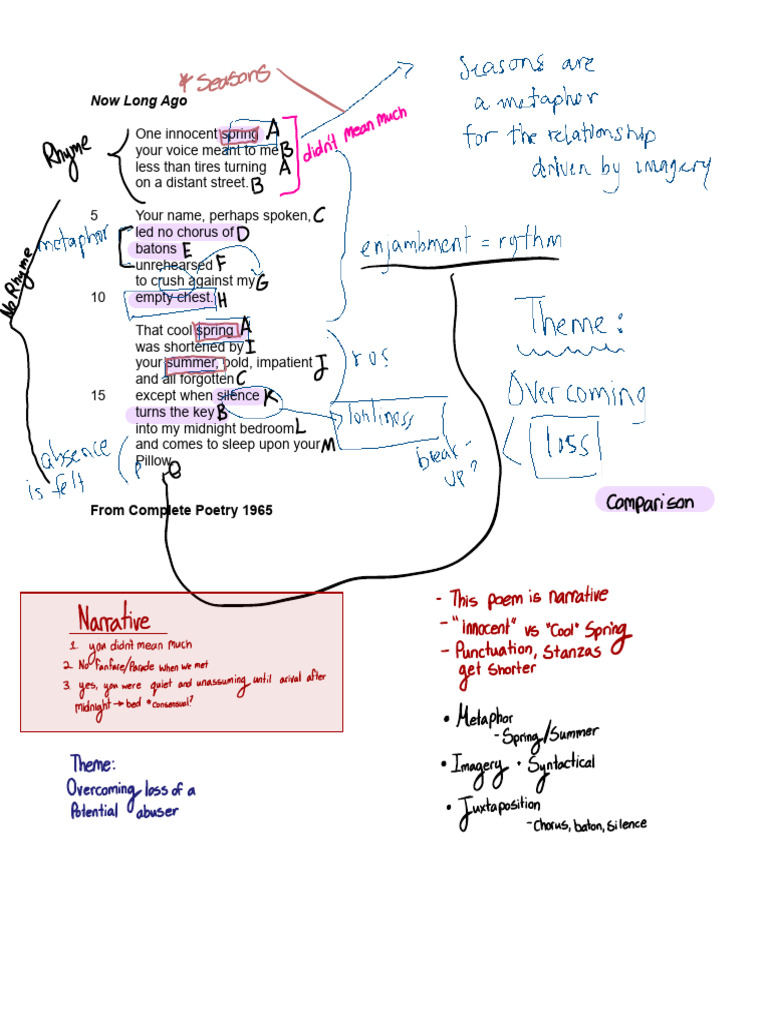 * Seasons
Seasons are
a metaphor
for the relationship
driven by imagery
Now Long Ago
Rhyme
One innocent spring A
your voice meant to me B
less than tires turning A
on a distant street. B
didn't mean much
5 Your name, perhaps spoken, C
led no chorus of D
batons E
unrehearsed F
to crush against my G
10 empty chest. H
metaphor
No Rhyme
enjambment = rythm
That cool spring A
was shortened by I
your summer, bold, impatient J
and all forgotten C
15 except when silence K
turns the key B
into my midnight bedroom L
and comes to sleep upon your M
Pillow.
ros
lonliness
break-
up?
absence
is felt
Theme:
Overcoming
loss
Comparison
From Complete Poetry 1965
Narrative
1. you didn't mean much
2. No Fanfare/Parade when we met
3. yes, you were quiet and unassuming until arival after
midnight → bed *consensual?
Theme:
Overcoming loss of a
Potential abuser
- This poem is narrative
- "Innocent" vs "Cool" Spring
- Punctuation, Stanzas
get Shorter
• Metaphor
- Spring/Summer
• Imagery • Syntactical
• Juxtaposition
- Chorus, baton, Silence